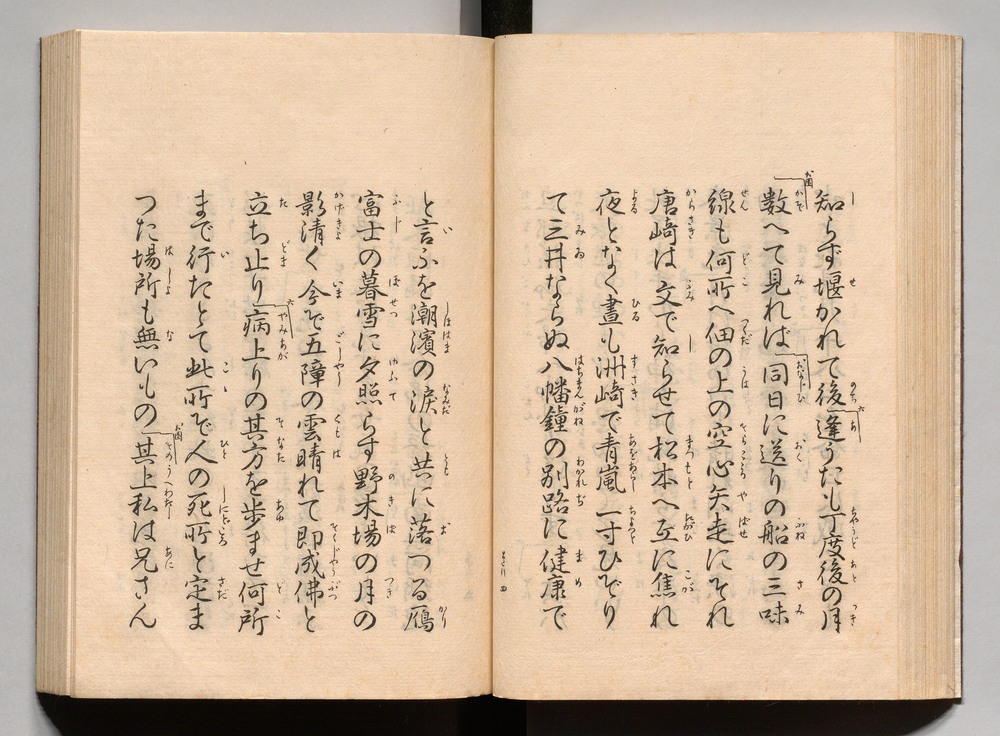 知らず堰かれて後逢うたも丁度後の月
数へて見れば同日に送りの船の三味
線も何所へ佃の上の空心矢走にそれ
唐崎は文で知らせて松本へ互に焦れ
夜となく晝も洲崎で青嵐一寸ひぞり
て三井ならぬ八幡鐘の別路に健康で
と言ふを潮濱の涙と共に落つる鴈
富士の暮雪に夕照らす野木場の月の
影清く今ぞ五障の雲晴れて即成佛と
立ち止り病上りの其方を歩ませ何所
まで行たとて此所ぞ人の死所と定ま
つた場所も無いもの其上私は兄さん